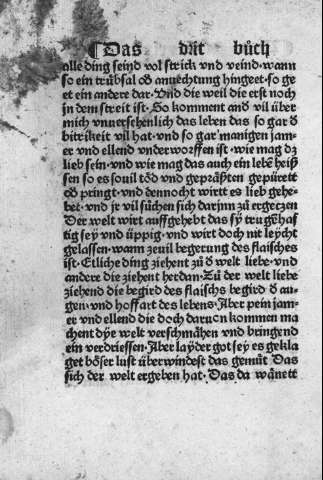 ¶Das drit bůch
alle ding seind vol strick vnd veind. wann
so ein trübsal oð anuechtung hingeet. so ge
et ein andere dar. Vnd die weil die erst noch
in dem streit ist. So komment and vil über
mich vnuersehenlich das leben das so gar ð
bitrikeit vil hat. vnd so gar manigen jam-
er vnd ellend vnderworffen ist. wie mag dz
lieb sein. vnd wie mag das auch ein lebē heiß
sen so es souil töd vnd gepräßten gepürett
oð pringt. vnd dennocht wirtt es lieb gehe-
bet. vnd jr vil sůchen sich darjnn zů ergeczen
Der welt wirt auffgehebt das sÿ trugēhaf
tig seÿ vnd üppig. vnd wirt doch nit leÿcht
gelassen. wann zeuil begerung des flaisches
ist. Etliche ding ziehent zů ð welt liebe. vnd
andere die ziehent herdan. Zů der welt liebe
ziehend die begird des flaischs begird ð au-
gen. vnd hoffart des lebens. Aber pein jam-
er vnd ellend die doch darucn kommen ma
chent dÿe welt verschmähen vnd bringend
ein verdriessen. Aber laÿder got seÿ es gekla
get böser lust überwindest das gemůt Das
sich der welt ergeben hat. Das da wänett